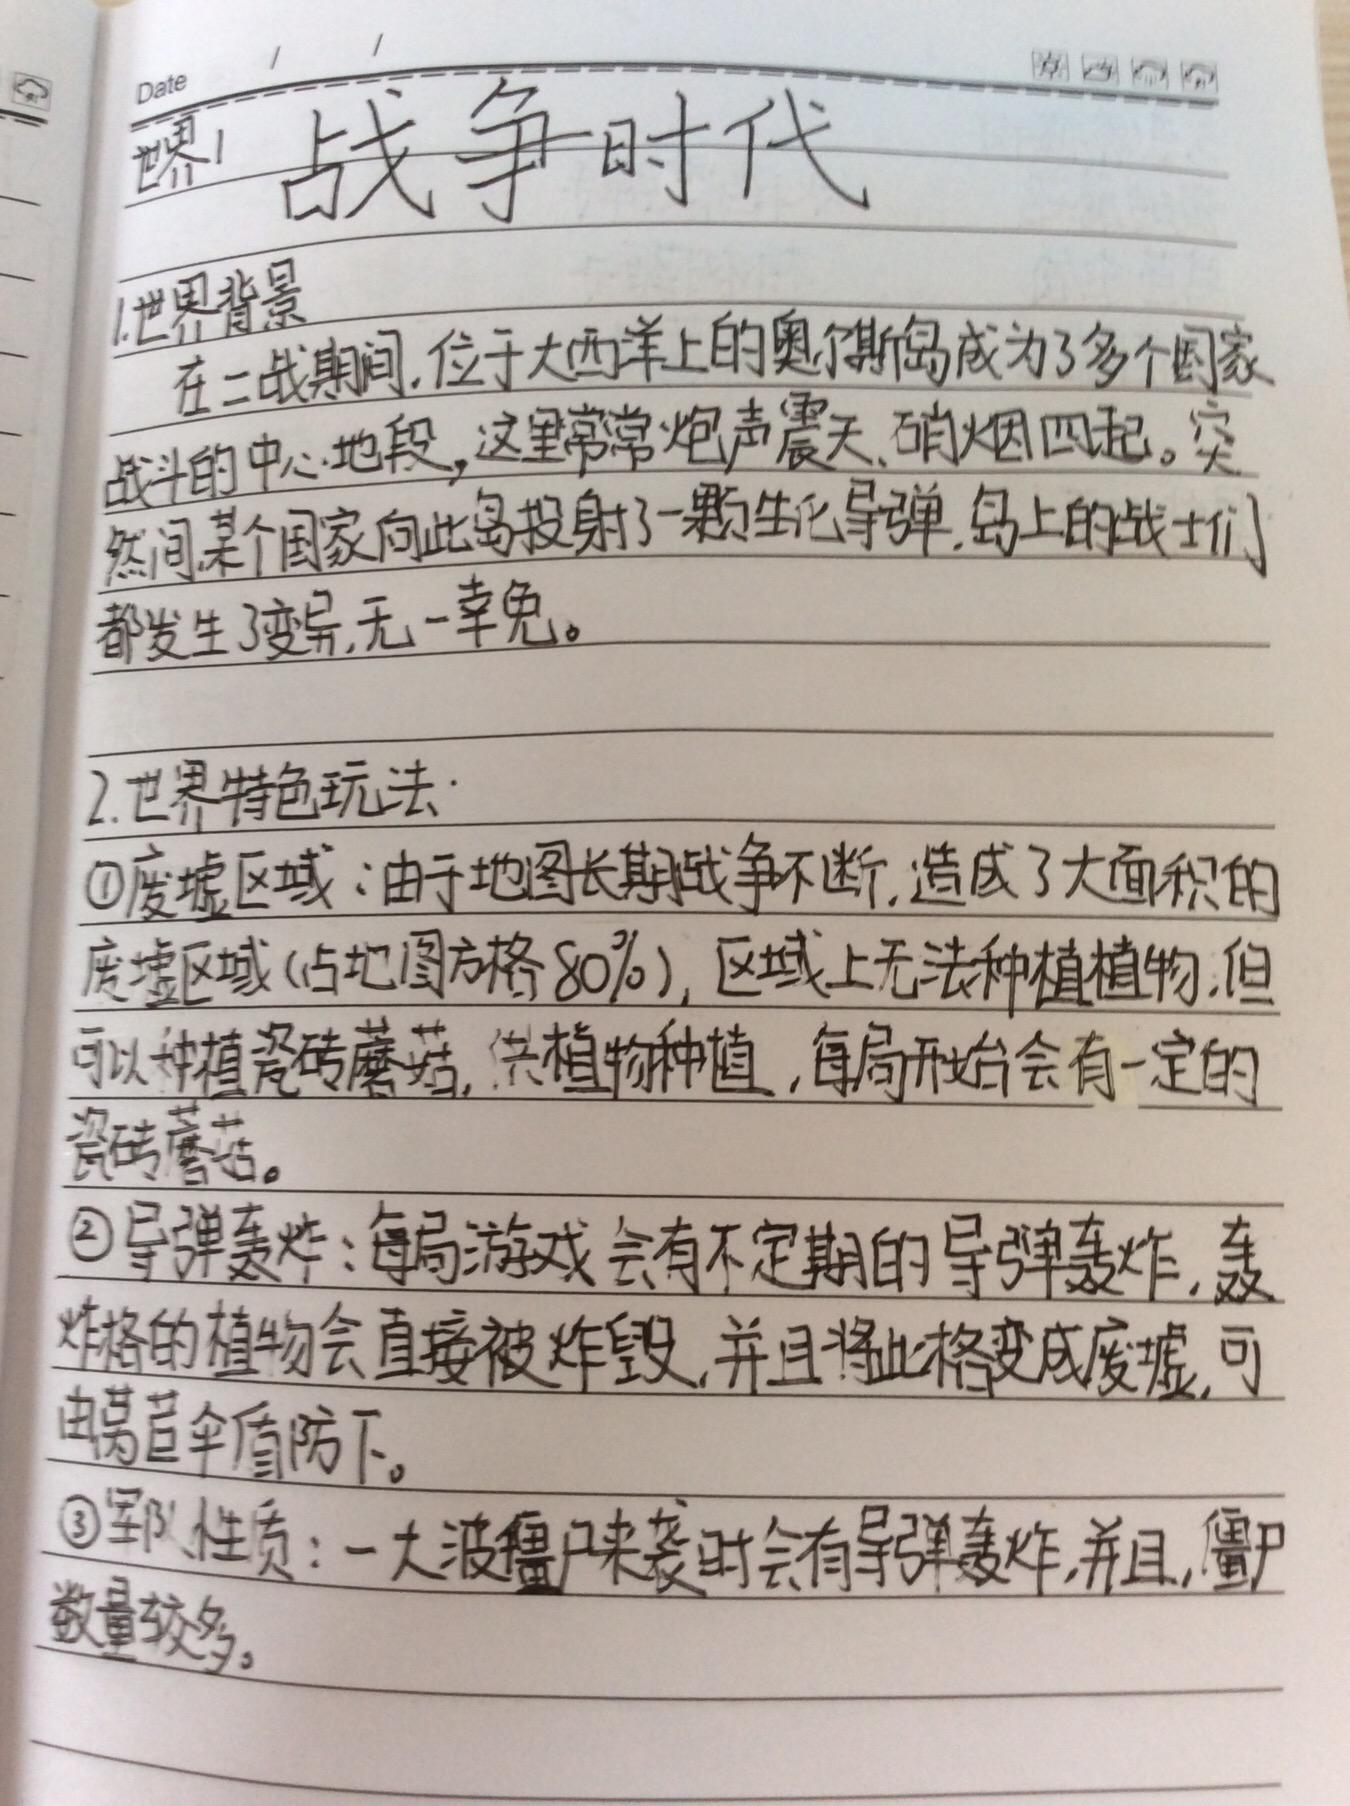 Date / /
世界1 战争时代
1.世界背景
在二战期间,位于大西洋上的奥尔斯岛成为了多个国家
战斗的中心地段,这里常常炮声震天、硝烟四起。突
然间某个国家向此岛投射了一颗生化导弹,岛上的战士们
都发生了变异,无一幸免。
2.世界特色玩法.
①废墟区域:由于地图长期战争不断,造成了大面积的
废墟区域(占地图方格80%),区域上无法种植植物,但
可以种植瓷砖蘑菇,供植物种植,每局开始会有一定的
瓷砖蘑菇。
②导弹轰炸:每局游戏会有不定期的导弹轰炸,轰
炸格的植物会直接被炸毁,并且将此格变成废墟,可
由莴苣伞盾防下。
③军队性质:一大波僵尸来袭时会有导弹轰炸,并且,僵尸
数量较多。